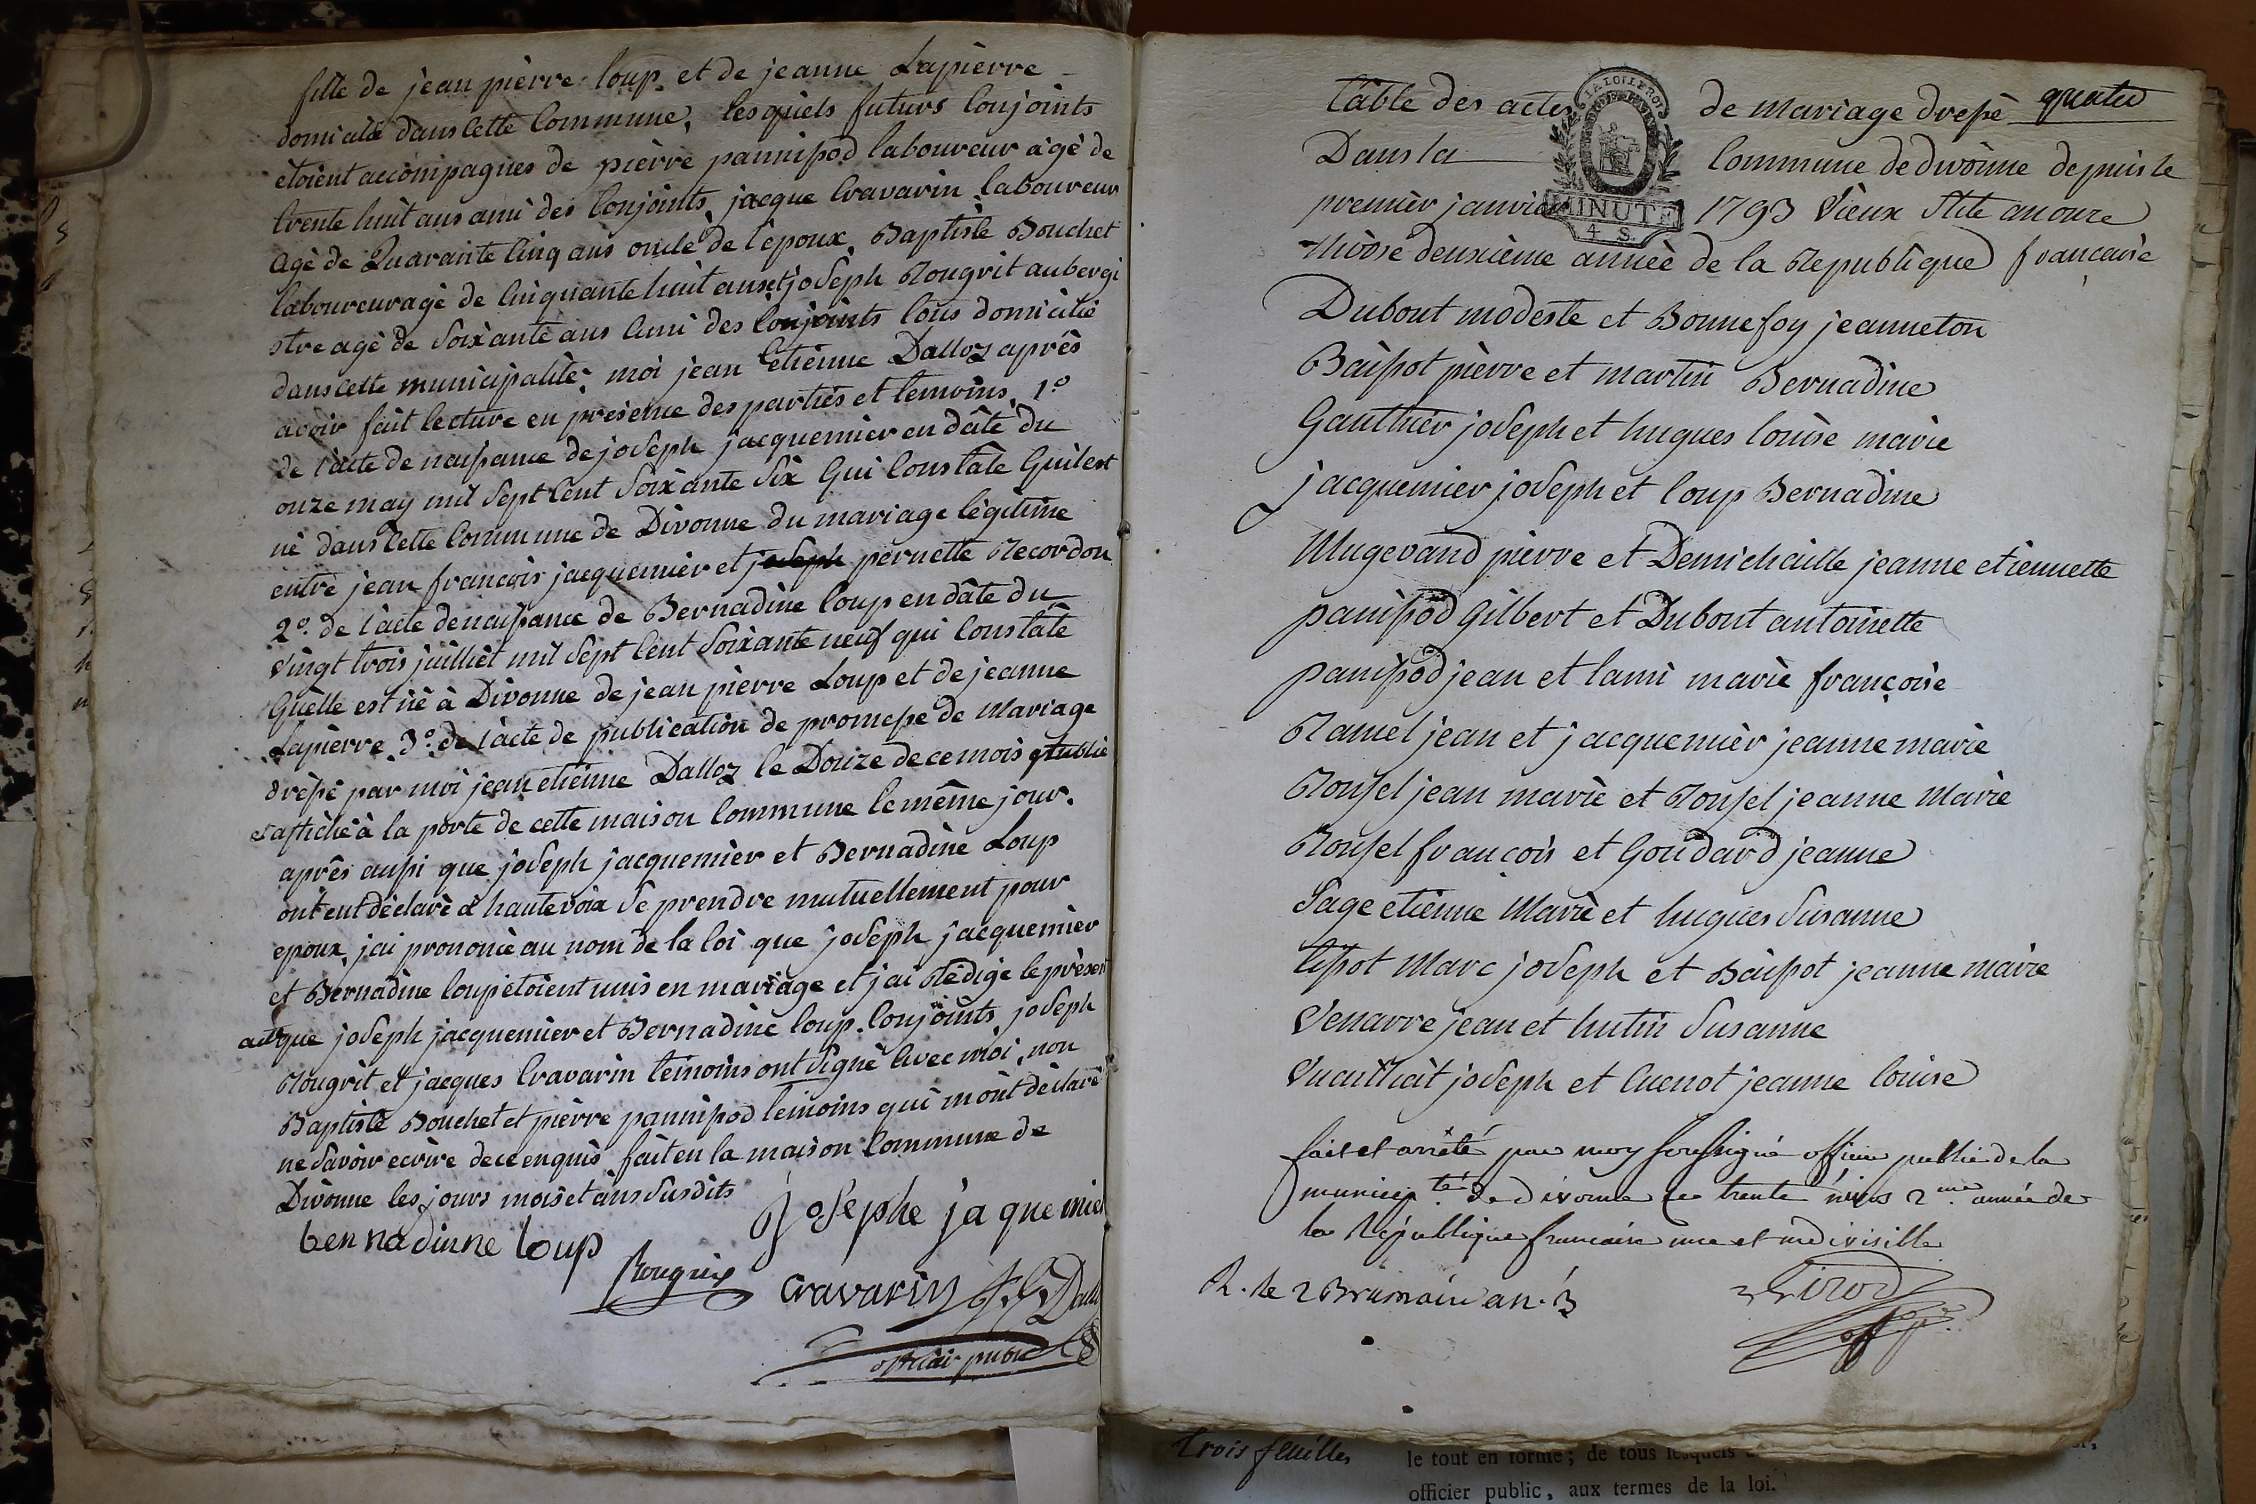 fille de jean pièrre loup et de jeanne Lapièrre
domicilié dans cette Commune, lesquiels futurs Conjoints
ètoient accompagnes de pièrre pannissod laboureur agè de
trente huit ans ami des Conjoints, jacque Cravarin laboureur
agè de Quarante Cinq ans oncle de l'èpoux, Baptiste Bouchet
laboureur agè de Cinquante huit ans et joseph Rougrit aubergi
stre agè de Soixante ans Ami des Conjoints tous domicilié
dans cette municipalitè; moi jean Etiènne Dalloz après
avoir fait lecture en presence des partiès et temoins, 1º
de l'acte de naissance de joseph jacquemier en dâte du
onze may mil Sept Cent Soixante Six Qui Constâte Quilest
nè dans Cette Commune de Divonne du mariage lègitime
entre jean francois jacquemier et joseph pernette Recordon
2º. de l'acte de naissance de Bernadine loup en dâte du
vingt trois juilliet mil Sept Cent Soixante neuf qui Constâte
Quèlle est nè à Divonne de jean pièrre Loup et de jeanne
Lapièrre, 3º. de l'acte de publication de promesse de Mariage
drèssè par moi jean etiènne Dalloz le Douze de ce mois publié
et affichè à la porte de cette maison Commune le même jour,
après aussi que joseph jacquemier et Bernadine Loup
ont eut dèclarè à hautevoix Se prendre mutuellement pour
epoux, jai prononcè au nom de la loi que joseph jacquemièr
et Bernadine loup ètoient unis en mariage et jai Rèdigè le présent
acte que joseph jacquemier et Bernadine loup Conjoints, joseph
Rougrit et jacques Cravarin tèmoins ont signè avec moi, non
Baptiste Bouchet et pièrre pannissod temoins qui mònt dèclarè
ne Savoir ecrire de ce enquis fait en la maison Commune de
Divonne les jours mois et ans Susdits
Josephe jaquemier
bennadinne loup
Rougrit Cravarin Dalloz
officièr public
quatre
table des actes de Mariage dressè
Dans la Commune de divonne depuis le
LA LOI LE ROI
premièr janvier 1793 Vièux Stile au onze
MINUTE
4 S.
Nivôse deuxième année de la Republique francaise
Dubout modeste et Bonnefoy jeanneton
Baissot pièrre et martin Bernadine
Gauthièr joseph et hugues louise marie
jacquemier joseph et loup Bernadine
Mugerand pièrre et Demichaille jeanne etiennette
panissod Gilbert et Dubout antoinette
panissod jean et lami marie françoise
Ramel jean et jacquemièr jeanne marie
Roussel jean marie et Roussel jeanne Marie
Roussel francois et Goudard jeanne
Sage etienne Marie et hugues Susanne
tissot Marc joseph et Baissot jeanne marie
Venarre jean et hutin Susanne
Vuailliat joseph et Cuenot jeanne louise
fait et arrêté par moy Soussigné officier public de la
municip.té de divonne ce trente nivos 2me année de
la République francaise une et indivisible
Girod
off. p.
R. le 2 Brumaire an. 3
trois feuilles
le tout en forme; de tous lesquels
officier public, aux termes de la loi.